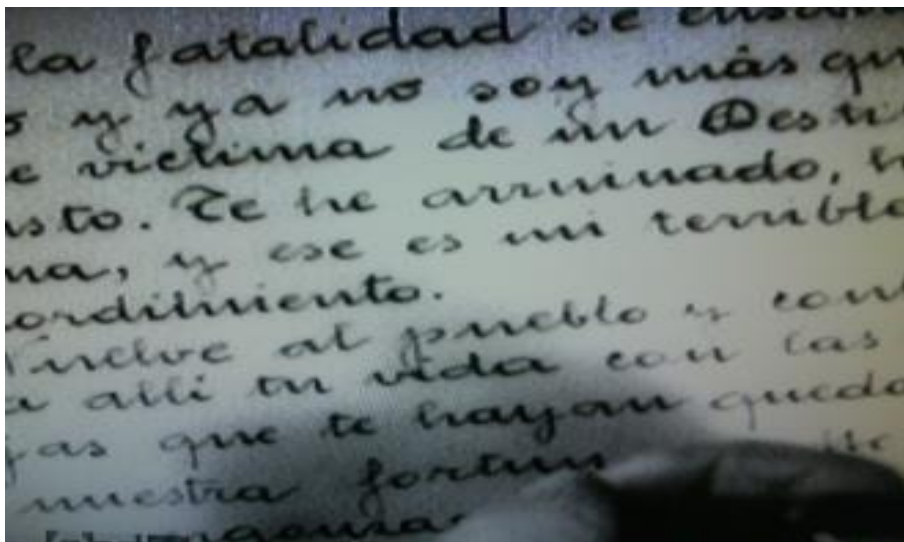 la fatalidad se
y ya no soy más qu
e victima de un Desti
usto. Te he arruinado, h
ma, y ese es mi terrible
ordimiento.
Vuelve al pueblo y cont
a allí tu vida con las
jas que te hayan queda
nuestra fortun